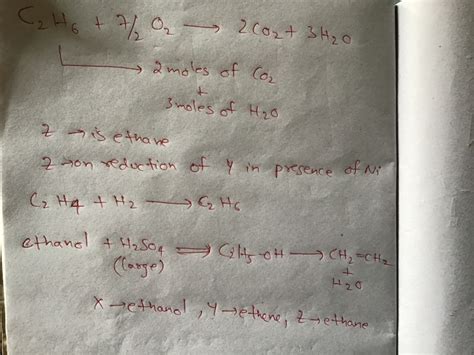 C2H6 + 7/2 O2 → 2CO2 + 3H2O
→ 2 moles of CO2
+
3 moles of H2O
Z → is ethane
Z → on reduction of Y in presence of Ni
C2H4 + H2 → C2H6
ethanol + H2SO4 ⇒ C2H5-OH → CH2=CH2
(large) +
H2O
X → ethanol, Y → ethene, Z → ethane